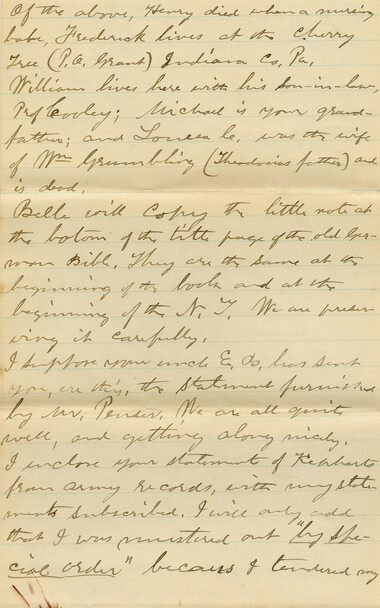 Of the above, Henry died when a nursing
babe, Frederick lives at the Cherry
Tree (P.O. Grant) Indiana Co, Pa,
William lives here with his Son-in-law,
Prof Cooley; Michael is your grand-
father; and was the wife
of Wm Grumbling (Theodosias father) and
is dead.
Belle will copy the little note at
the botom of the title page of the old Ger-
man Bible. They are the same at the
beginning of the book and at the
beginning of the N. T. We are preser-
ving it carefully.
I suppose your uncle E. has sent
you, ere this, the statement furnished
by Mr. We are all quite
well, and getting along nicely.
I inclose your statement of Kepharts
from army records, with my state-
ments subscribed. I will only add
that I was mustered out "by spe-
cial order" becaus I tendered my